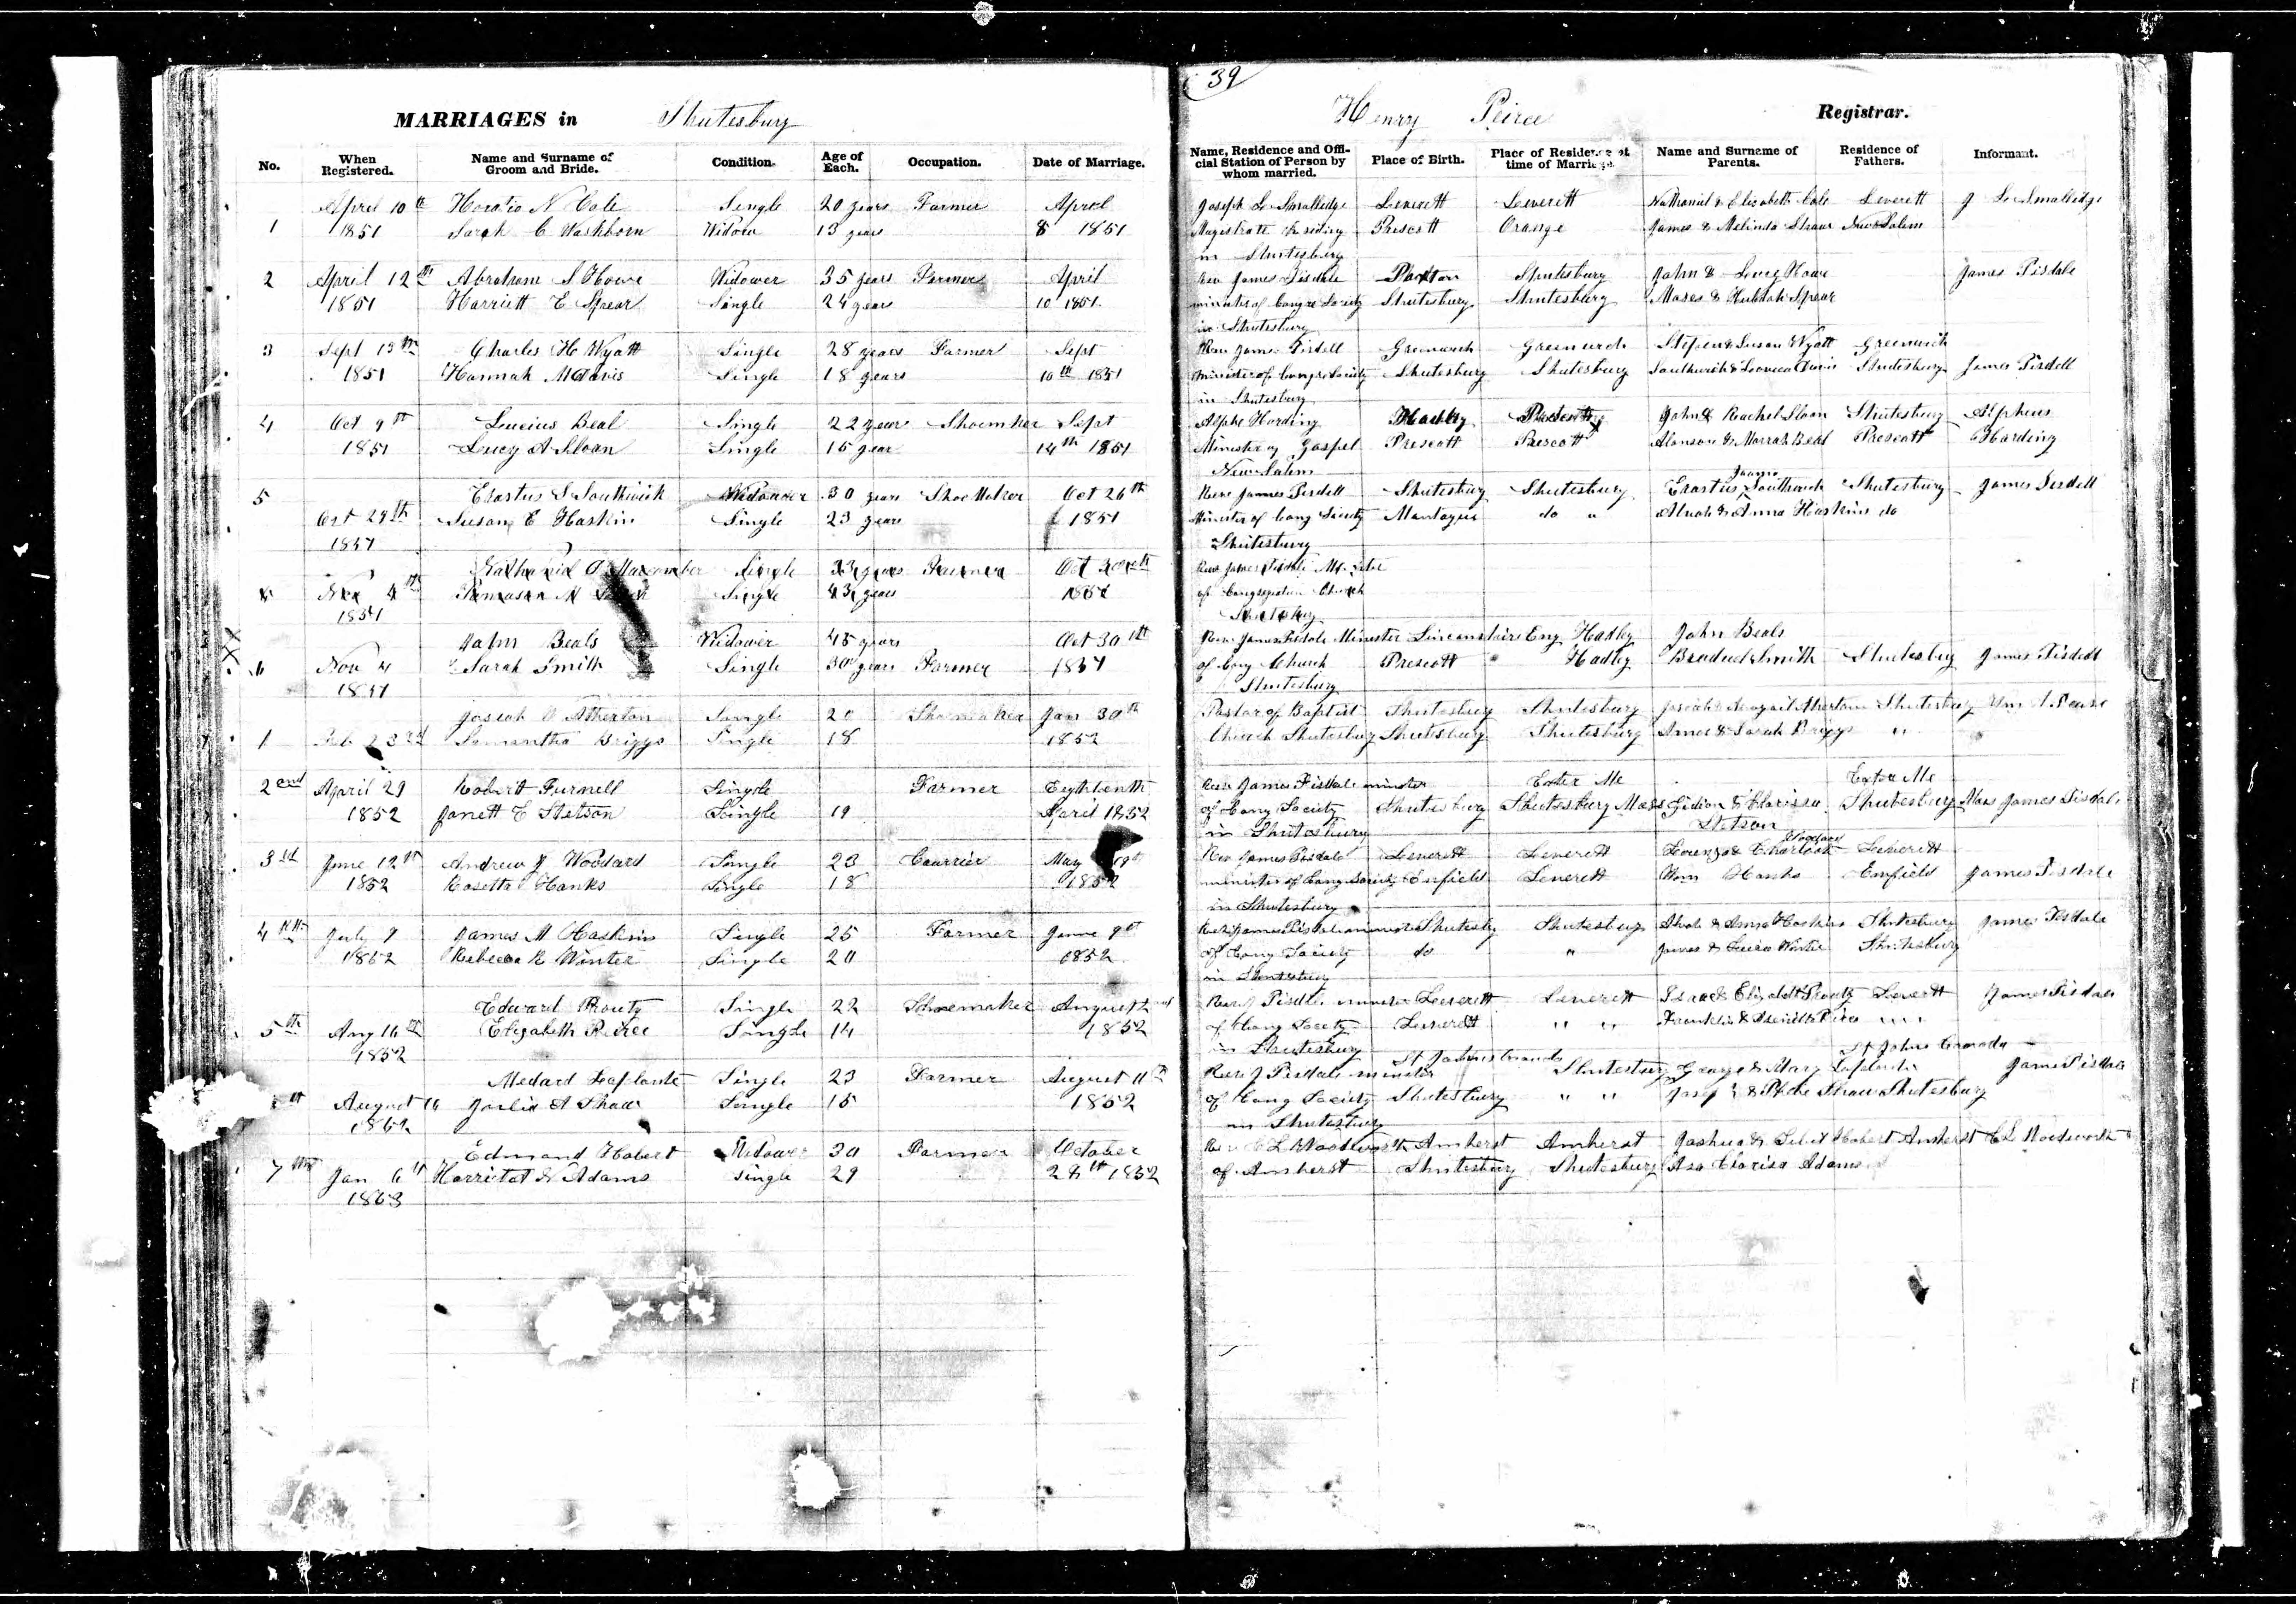 39
MARRIAGES in Shutesbury
Henry Peirce Registrar.
No. When Registered. Name and Surname of Groom and Bride. Condition. Age of Each. Occupation. Date of Marriage. Name, Residence and Official Station of Person by whom married. Place of Birth. Place of Residence at time of Marriage. Name and Surname of Parents. Residence of Fathers. Informant.
April 10th Horatio N Cole Single 20 years Farmer April Joseph L Smalledge Leverett Leverett Nathaniel & Elizabeth Cole Leverett J L Smalledge
1 1851 Sarah C Washborn Widow 13 years 8 1851 Magistrate residing Prescott Orange James & Melinda Shaw New Salem
in Shutesbury
2 April 12th Abraham S Howe Widower 35 years Farmer April Rev James Tisdale Paxton Shutesbury John & Lucy Howe James Tisdale
1851 Harriett E Spear Single 24 years 10 1851 minister of Congre Society Shutesbury Shutesbury Moses & Spear
in Shutesbury
3 Sept 13th Charles H Wyatt Single 28 years Farmer Sept Rev James Tisdell Greenwich Greenwich Stephen & Susan Wyatt Greenwich
1851 Hannah M Davis Single 18 years 10th 1851 Minister of Congre Society Shutesbury Shutesbury Davis Shutesbury James Tisdell
in Shutesbury
4 Oct 9th Lucius Beal Single 22 years Shoemker Sept Alphe Harding Hadley John & Rachel Sloan Shutesbury Alpheus
1851 Lucy A Sloan Single 15 year 14th 1851 Minister of Gospel Prescott Prescott Alonson & Beal Prescott Harding
New Salem
5 Erastus S Southwick Widower 30 years Shoe Maker Oct 26th Rev James Tisdell Shutesbury Shutesbury Erastus Southwick Shutesbury James Tisdell
Oct 29th Susan E Haskin Single 23 years 1851 Minister of Cong Society Montague do " & Anna Haskins do
1851 Shutesbury
Nathaniel Macomber Single 33 years Farmer Oct 30th Rev James Tisdale
Nov 4th Single 43 years 1851 of Congregation Church
1851
John Beals Widower 45 years Oct 30th Rev James Tisdale Minester Lincenshire Eng Hadley John Beals
6 Nov 4 Sarah Smith Single 30 years Farmer 1851 of Cong Church Prescott Hadley Smith Shutesbury James Tisdell
1851 Shutesbury
Josiah Atherton Single 20 Shoemaker Jan 30th Pastor of Baptist Shutesbury Shutesbury Josiah & Atherton Shutesbury
1 Feb 23rd Samantha Briggs Single 18 1852 Church Shutesbury Shutesbury Shutesbury Amos & Sarah Briggs "
2end April 29 Robert Furnell Single Farmer Eightenth Rev James Tisdale minster Exter Me Exter Me
1852 Janett E Stetson Single 19 April 1852 of Cong Society Shutesbury Shutesbury Mass Gidion & Clarissa Shutesbury Mass James Tisdale
in Shutesbury Stetson
3rd June 12th Andrew J Woodard Single 23 Courrier May Rev James Tisdale Leverett Leverett Lorenzo & Leverett
1852 Rosetta Hanks Single 18 1852 minister of Cong Society Enfield Leverett Wm Hanks Enfield James Tisdale
in Shutesbury
4th July 9 James M Haskins Single 25 Farmer June 9th Rev James Tisdale Shutesbury Shutesbury & Anna Haskins Shutesbury James Tisdale
1852 Rebecca R Winter Single 20 1852 of Cong Society do " James & Winter Shutesbury
in Shutesbury
Edward Prouty Single 22 Shoemaker August 2nd Rev J Tisdale minister Leverett Leverett Isaac & Elizabeth Prouty Leverett James Tisdale
5th Aug 16th Elizabeth Peirce Single 14 1852 of Cong Society Leverett " " Franklin & Peirce " "
1852 in Shutesbury St Johns Canada St Johns Canada
Medard Laplante Single 23 Farmer August 11th Rev J Tisdale minister Shutesbury George & Mary Laplante James Tisdale
August 16 Julia A Shaw Single 15 1852 of Cong Society Shutesbury " " Shaw Shutesbury
1852 in Shutesbury
Edmond Hobert Widower 30 Farmer October Rev C L Woodworth Amherst Amherst Joshua & Hobert Amherst C L Woodworth
7th Jan 6th Harriet N Adams Single 29 28th 1852 of Amherst Shutesbury Shutesbury Asa Clarisa Adams
1853